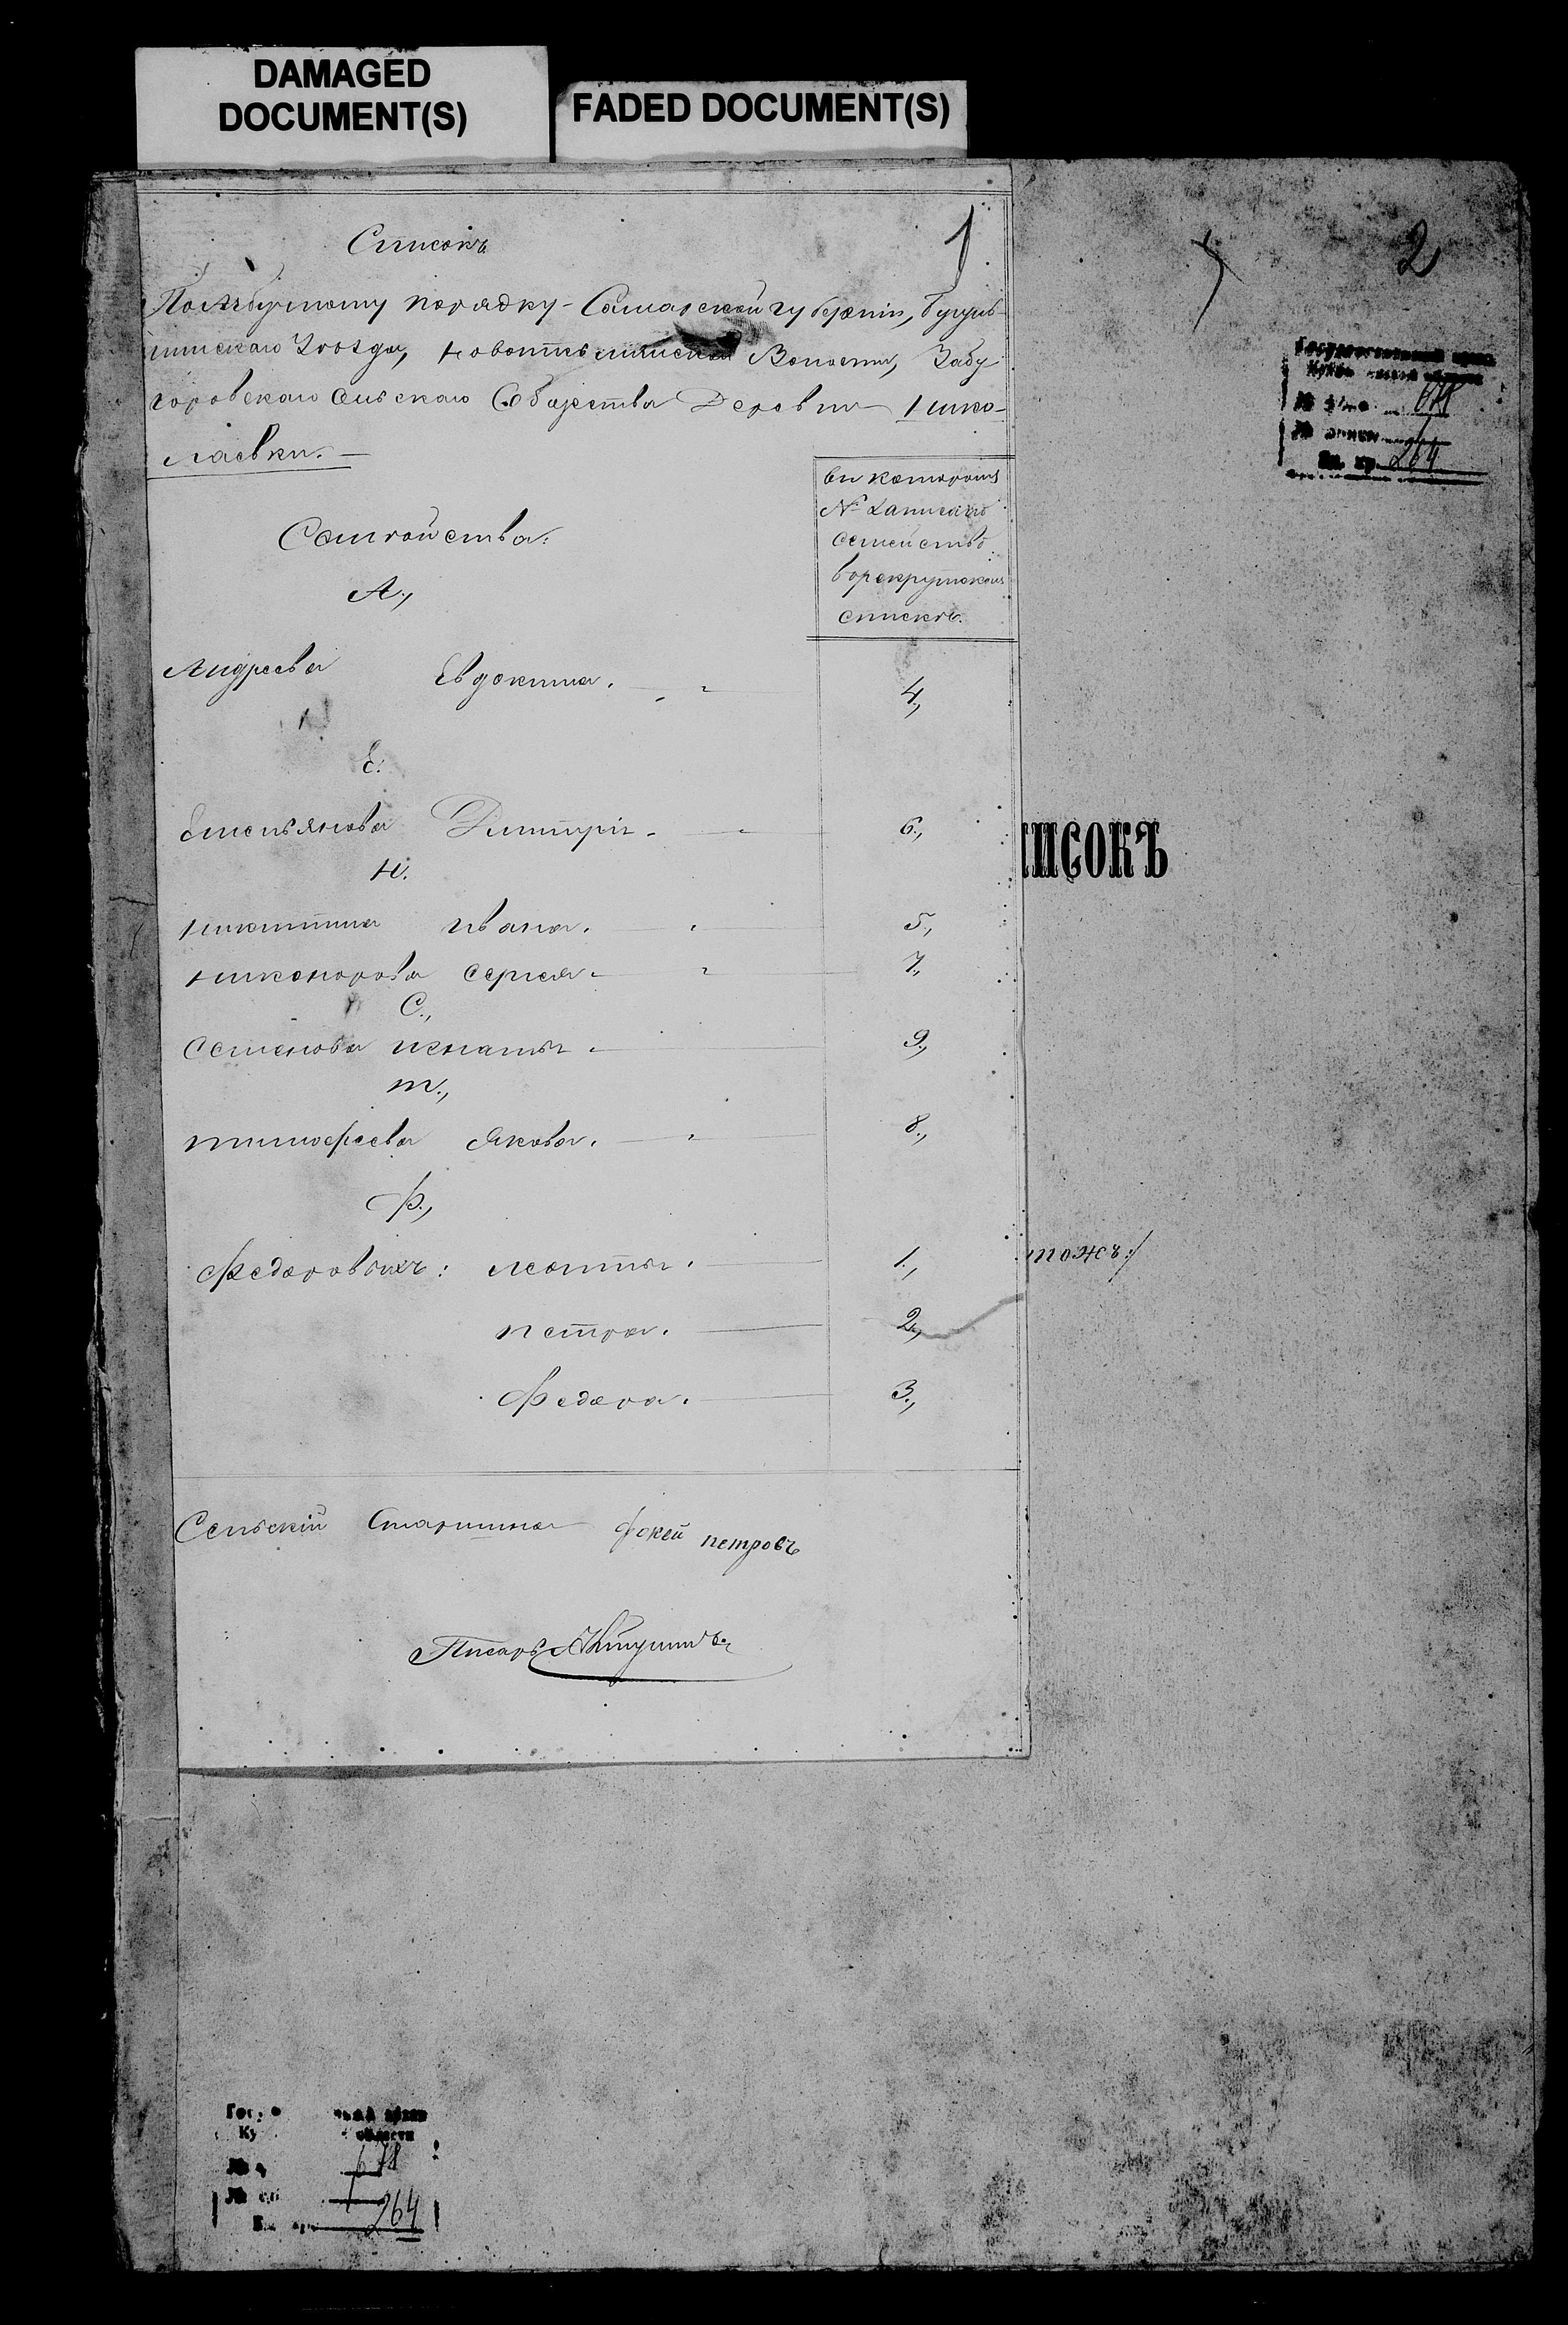 DAMAGED
DOCUMENT(S)
FADED DOCUMENT(S)
1
2
Списокъ
По Азбучному порядку Самарской губерніи, Бугуль-
минскаго Уѣзда, Волости, Забу
горовскаго Сельскаго Общества Деревни Нико-
лаевки. —
въ которомъ
№ записано
семейство
в рекрутском
спискѣ.
Семейства:
А.,
Андреева Евдокима. 4.,
Е.
Емельянова Дмитрія. 6.,
Н.
Никитина Ивана. 5.,
Никонорова Сергея. 7.,
С.,
Семенова Игнатья. 9.,
Т.,
Тимофеева Якова. 8.,
Ф.,
Федоровыхъ: Леонтья. 1.,
Петра. 2.,
Федора. 3.,
Сельскій Старшина Фокей Петровъ
Писарь
ПИСОКЪ
Государственный архив
области
№ фонд. 678
№ описи 1
Ед. хр. 264
области
678
1
264